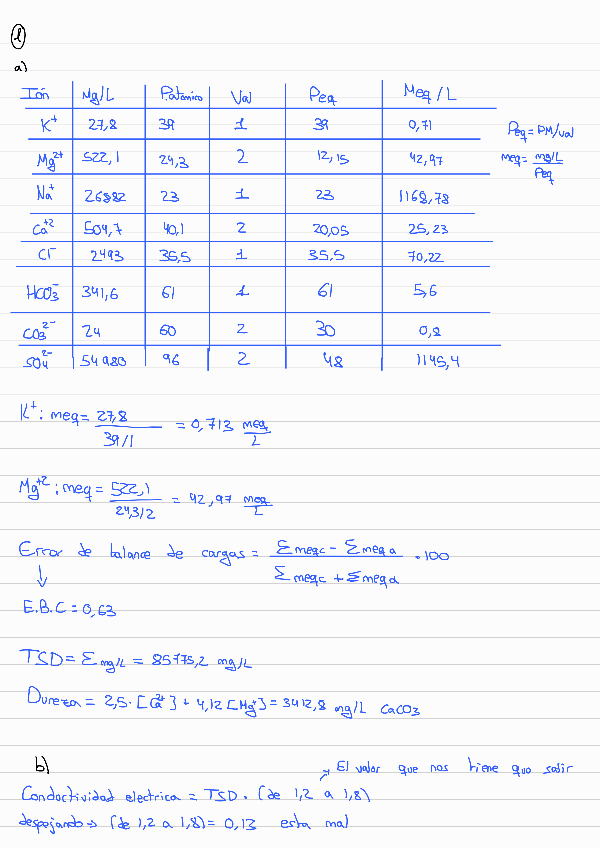 1
a)
Ión Mg/L P.atómico Val Peq Meq/L
K+ 27,8 39 1 39 0,71
Peq = PM/val
Mg2+ 522,1 24,3 2 12,15 42,97
meq = mg/L / Peq
Na+ 26882 23 1 23 1168,78
Ca+2 504,7 40,1 2 20,05 25,23
Cl- 2493 35,5 1 35,5 70,22
HCO3- 341,6 61 1 61 5,6
CO3 2- 24 60 2 30 0,8
SO4 2- 54980 96 2 48 1145,4
K+: meq = 27,8 / 39/1 = 0,713 meq/L
Mg+2: meq = 522,1 / 24,3/2 = 42,97 meq/L
Error de balance de cargas = Σmeqc - Σmeqa / Σmeqc + Σmeqa • 100
↓
E.B.C = 0,63
TSD = Σmg/L = 85775,2 mg/L
Dureza = 2,5 · [Ca2+] + 4,12 [Mg+] = 3412,8 mg/L CaCO3
b)
El valor que nos tiene que salir
Conductividad electrica = TSD · (de 1,2 a 1,8)
despejando → (de 1,2 a 1,8) = 0,13 esta mal